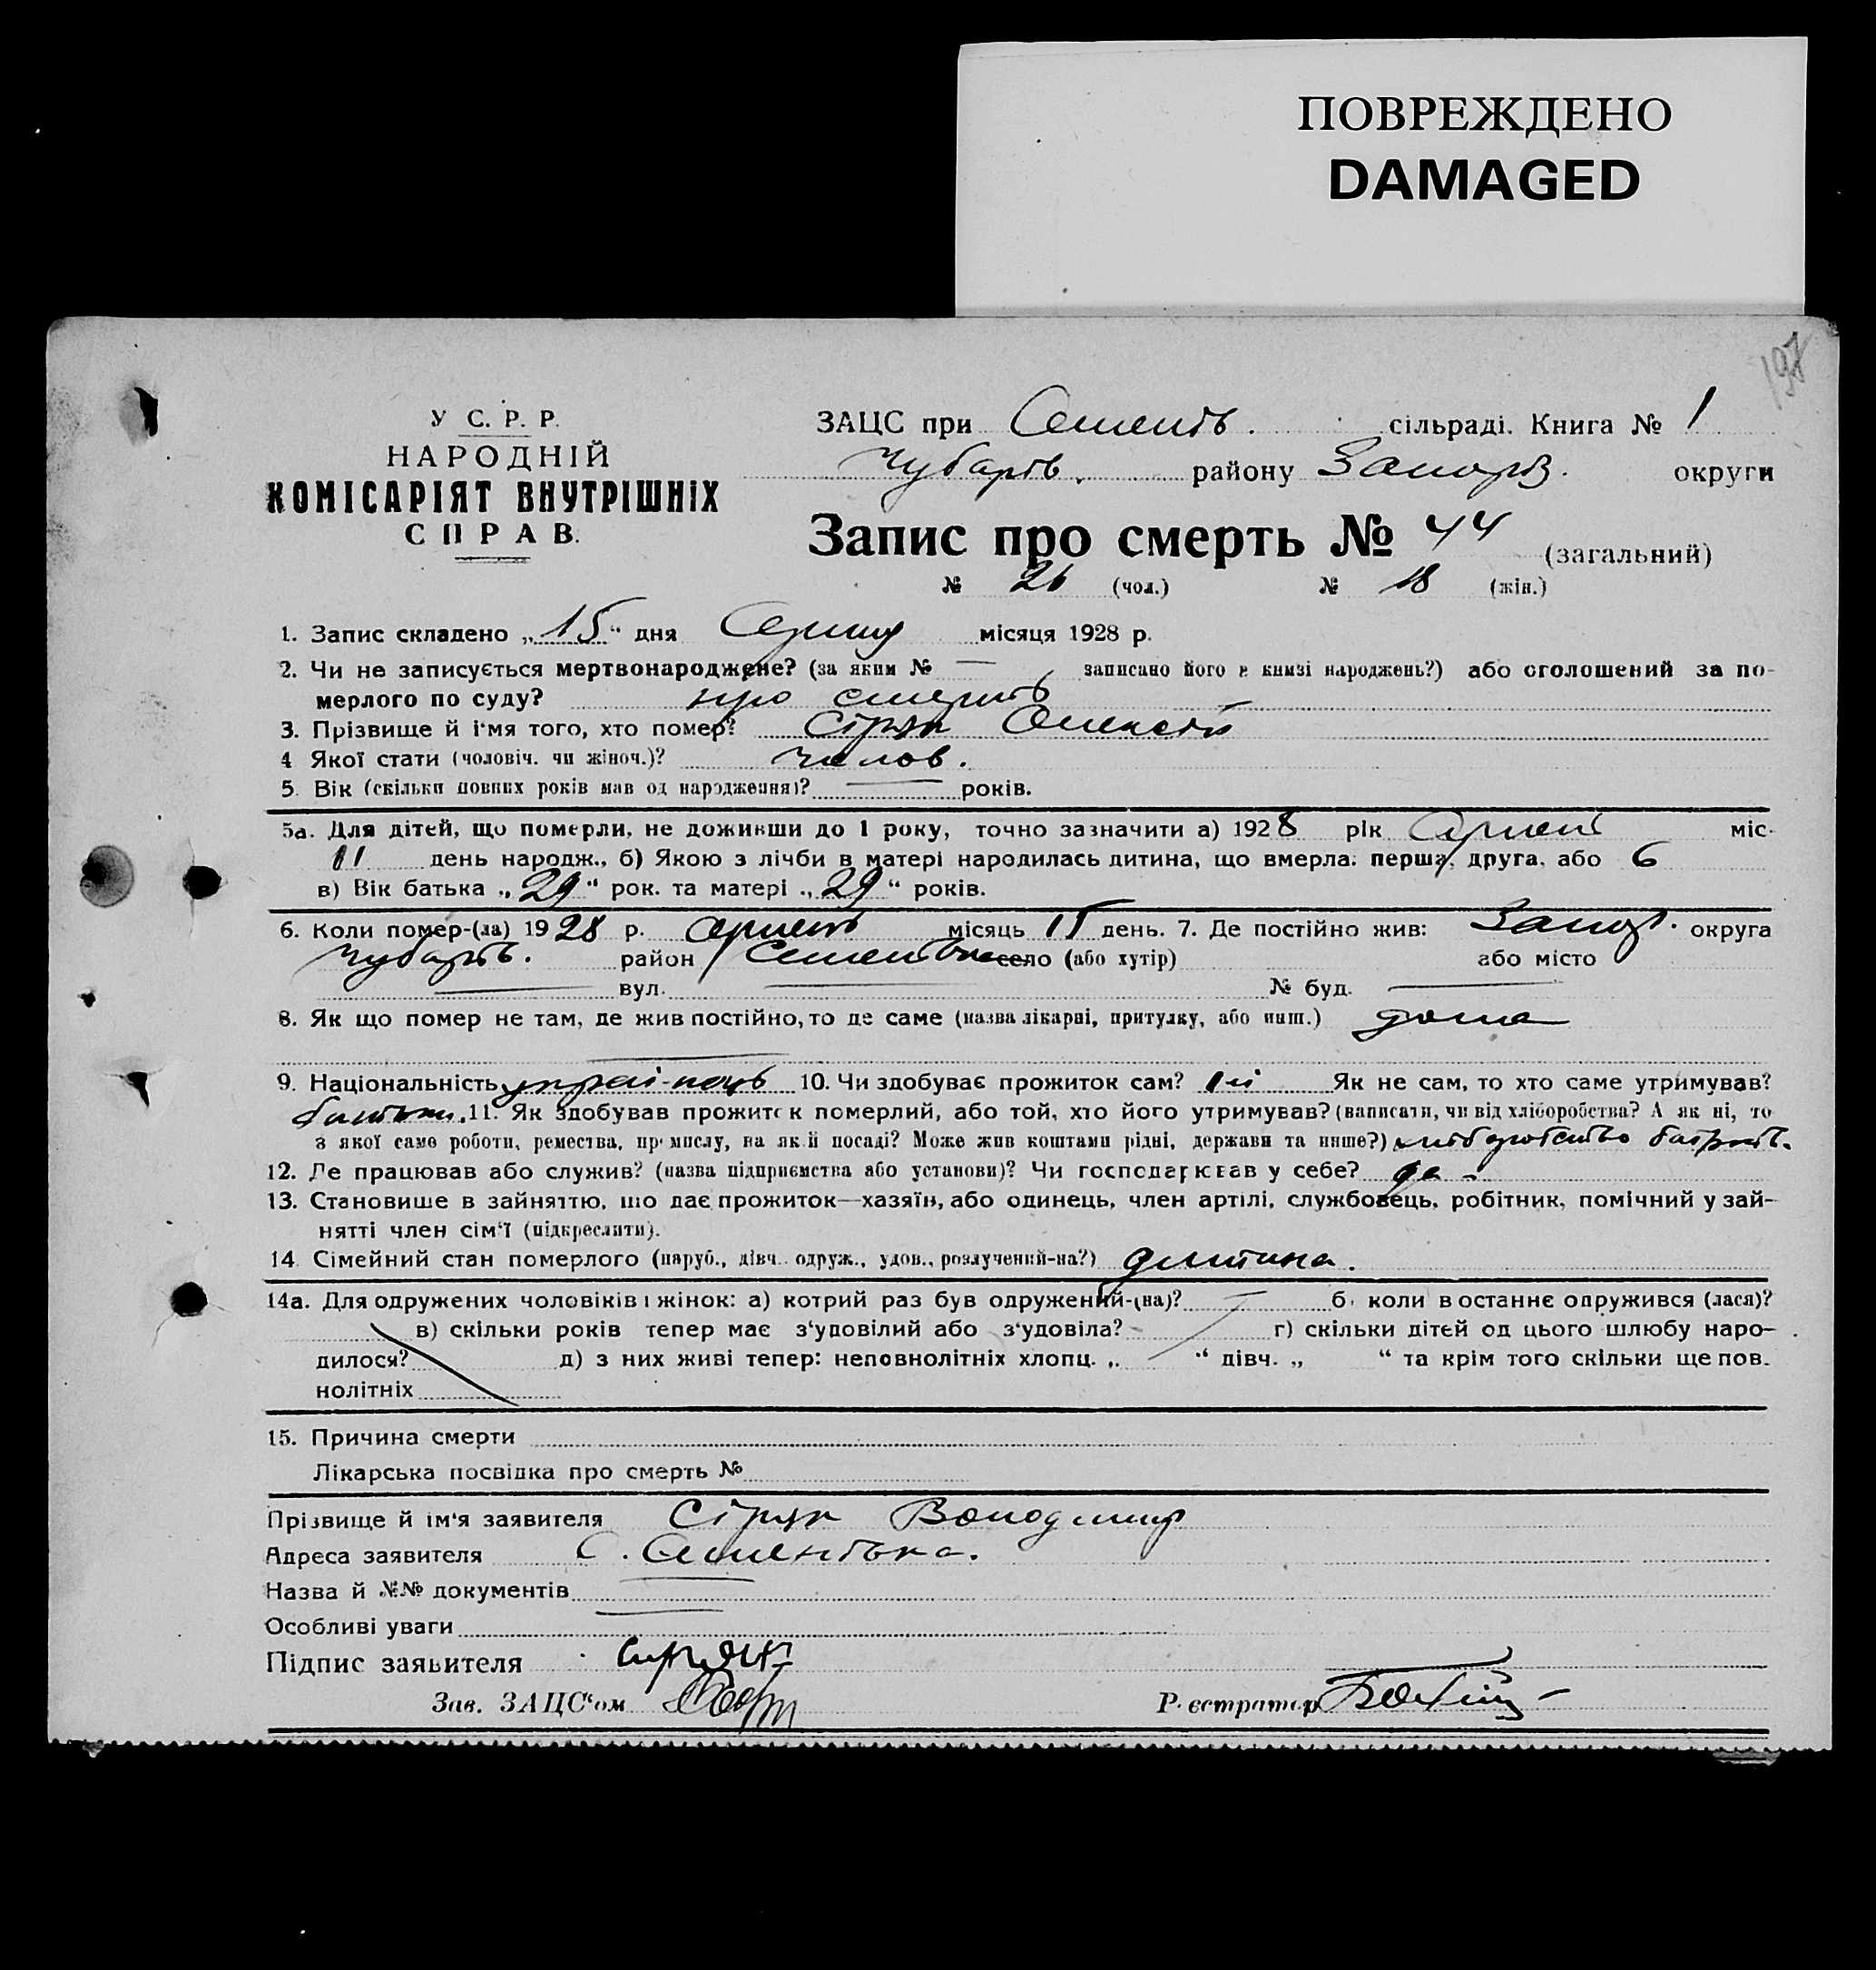 ПОВРЕЖДЕНО
DAMAGED
198
У С. Р. Р.
НАРОДНІЙ
КОМІСАРІЯТ ВНУТРІШНІХ
СПРАВ.
ЗАЦС при Семенів. сільраді. Книга № 1
Чубарів. району Запоріз. округи
Запис про смерть № 44 (загальний)
№ 26 (чол.) № 18 (жін.)
1. Запис складено „15“ дня Серпня місяця 1928 р.
2. Чи не записується мертвонароджене? (за яким № — записано його в книзі народжень?) або оголошений за по-
мерлого по суду? про смерть
3. Прізвище й і'мя того, хто помер? Сірик Олексій
4 Якої стати (чоловіч. чи жіноч.)? чолов.
5. Вік (скільки повних років мав од народження)? — років.
5а. Для дітей, що померли, не доживши до 1 року, точно зазначити а) 1928 рік Серпень міс.
11 день народж., б) Якою з лічби в матері народилась дитина, що вмерла: перша, друга, або 6
в) Вік батька „29“ рок. та матері „29“ років.
6. Коли помер-(ла) 1928 р. Серпень місяць 15 день. 7. Де постійно жив: Запор. округа
Чубарів. район Семенівка село (або хутір) або місто
— вул. — № буд. —
8. Як що помер не там, де жив постійно, то де саме (назва лікарні, притулку, або инш.) дома
9. Національність украї-нець 10. Чи здобуває прожиток сам? ні Як не сам, то хто саме утримував?
батьки. 11. Як здобував прожиток померлий, або той, хто його утримував? (написати, чи від хліборобства? А як ні, то
з якої саме роботи, ремества, промислу, на якій посаді? Може жив коштами рідні, держави та инше?) хліборобство батьків.
12. Де працював або служив? (назва підприємства або установи)? Чи господарював у себе? да -
13. Становише в зайняттю, що дає прожиток—хазяїн, або одинець, член артілі, службовець, робітник, помічний у зай-
нятті член сім'ї (підкреслити).
14 Сімейний стан померлого (паруб., дівч. одруж., удов., розлучений-на?) дитина.
14а. Для одружених чоловіків і жінок: а) котрий раз був одружений-(на)? — б) коли востаннє одружився (лася)?
в) скільки років тепер має з'удовілий або з'удовіла? г) скільки дітей од цього шлюбу наро-
дилося? д) з них живі тепер: неповнолітніх хлопц. „ “ дівч. „ “ та крім того скільки ще пов.
нолітніх
15. Причина смерти
Лікарська посвідка про смерть №
Прізвище й ім'я заявителя Сірик Володимир
Адреса заявителя С. Семенівка.
Назва й №№ документів —
Особливі уваги —
Підпис заявителя
Зав. ЗАЦС'ом
Реєстратор